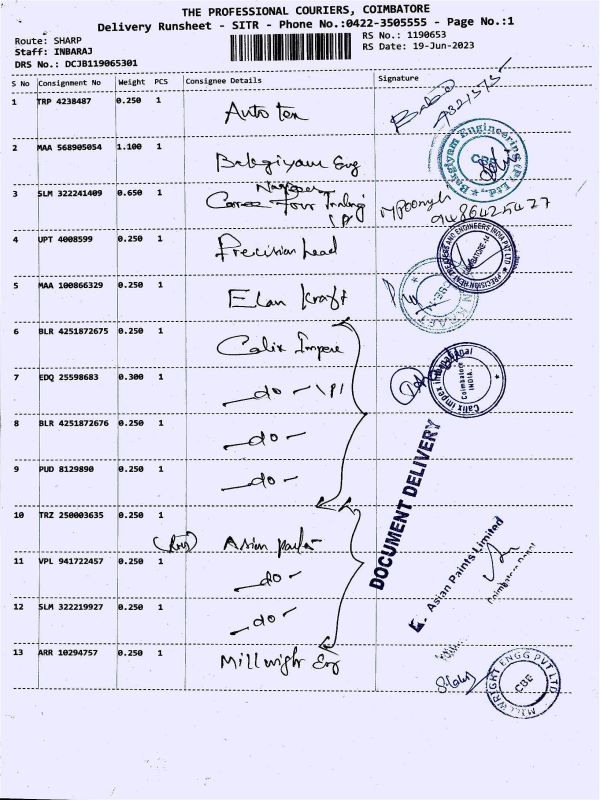 THE PROFESSIONAL COURIERS, COIMBATORE
Delivery Runsheet - SITR - Phone No.:0422-3505555 - Page No.:1
Route: SHARP
Staff: INBARAJ
DRS No.: DCJB119065301
RS No.: 1190653
RS Date: 19-Jun-2023
S No Consignment No Weight PCS Consignee Details Signature
1 TRP 4238487 0.250 1 Auto Tex
2 MAA 568905054 1.100 1 Balagiyam Eng
Balagiyam Engineering (P) Ltd.
CBE
3 SLM 322241409 0.650 1 Four Trading
9486425427
4 UPT 4008599 0.250 1 Precision Head
PRECISION HEAT AND ENGINEERS INDIA PVT LTD
COIMBATORE
5 MAA 100866329 0.250 1 Elan Kraft
6 BLR 4251872675 0.250 1 Calix Impere
7 EDQ 25598683 0.300 1 -do- \P1
Calix Impex International
Coimbatore
INDIA.
8 BLR 4251872676 0.250 1 -do-
9 PUD 8129890 0.250 1 -do-
DOCUMENT DELIVERY
10 TRZ 250003635 0.250 1 Asian
11 VPL 941722457 0.250 1 -do-
12 SLM 322219927 0.250 1 -do-
Asian Paints Limited
Coimbatore Depot
13 ARR 10294757 0.250 1 Millwright Eng
MILLWRIGHT ENGG PVT LTD
CBE